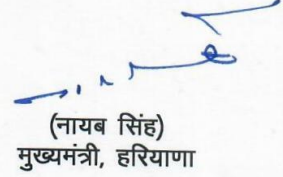 (नायब सिंह)
मुख्यमंत्री, हरियाणा